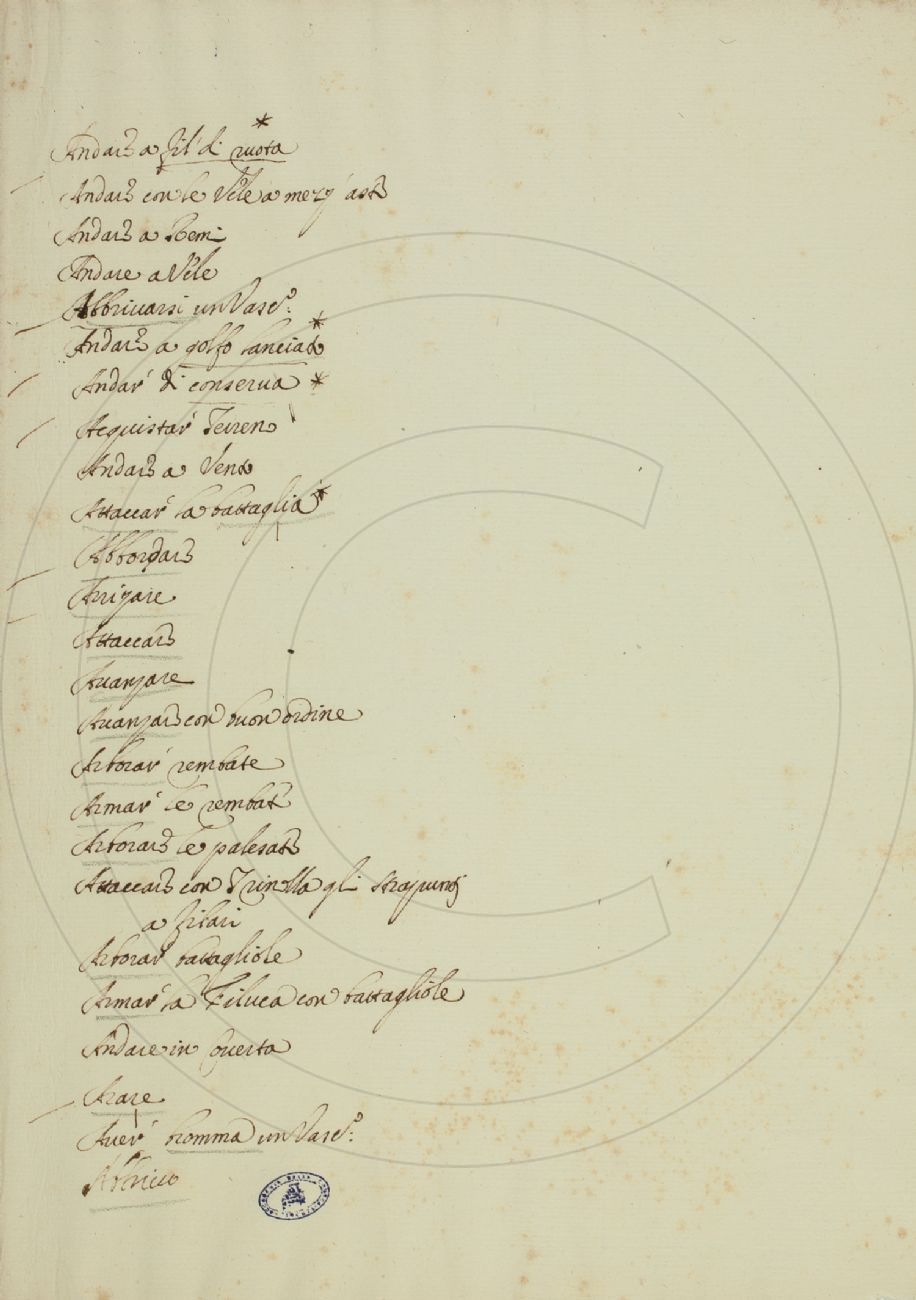 Andare a fil di ruota *
Andare con le Vele a mezz' aste
Andare a Remi
Andare a Vele
Abbrivarsi un Vasc.º
Andare a golfo lanciato *
Andar' di conserva *
Acquistar' Terreno
Andare a Vento
Attaccar' la battaglia *
Abbordare
Arrizare
Attaccare
Avanzare
Avanzare con buon ordine
Arborar' rembate
Armar' le rembate
Arborare le palesate
Attaccare con Trinella gli strapunti
a filari
Arborar' batagliole
Armar' la Filuca con battagliole
Andare in Guerra
Arare
Aver' bromma un Vasc.º
Abbrivo